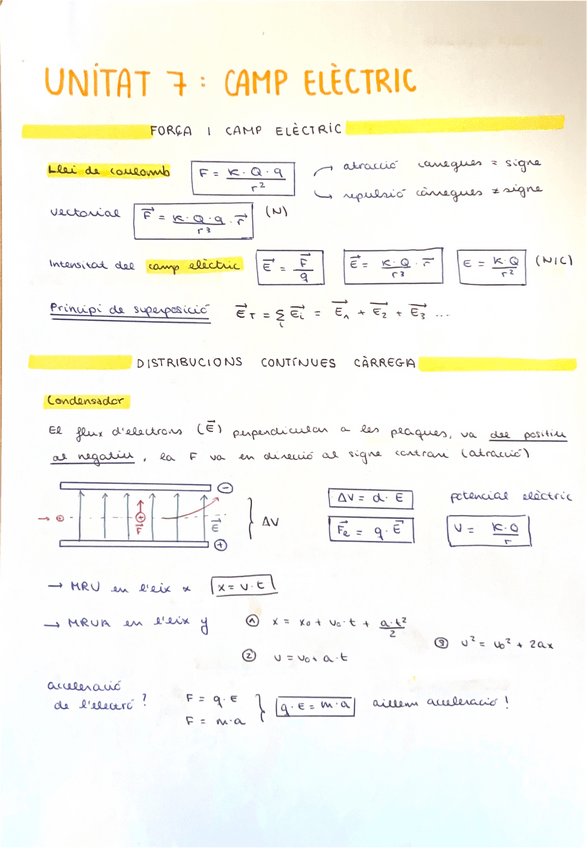 UNITAT 7 : CAMP ELÈCTRIC
FORÇA I CAMP ELÈCTRIC
Llei de coulomb F = K · Q · q / r² → atracció càrregues = signe
↳ repulsió càrregues ≠ signe
vectorial F⃗ = K · Q · q · r⃗ / r³ (N)
Intensitat del camp elèctric E⃗ = F⃗ / q E⃗ = K · Q · r⃗ / r³ E = K · Q / r² (N/C)
Principi de superposició E⃗T = Σi E⃗i = E⃗1 + E⃗2 + E⃗3 ...
DISTRIBUCIONS CONTÍNUES CÀRREGA
Condensador
El flux d'electrons (E⃗) perpendicular a les plaques, va del positiu
al negatiu, la F va en direcció al signe contrari (atracció)
⊖ ΔV = d · E potencial elèctric
→ ⊖ ⊕ F⃗ E⃗ } ΔV F⃗e = q · E⃗ V = K · Q / r
⊕
→ MRU en l'eix x x = v · t
→ MRUA en l'eix y ① x = x0 + v0 · t + a · t² / 2
③ v² = v0² + 2ax
② v = v0 + a · t
acceleració
de l'electró ? F = q · E } q · E = m · a aïllem acceleració !
F = m · a